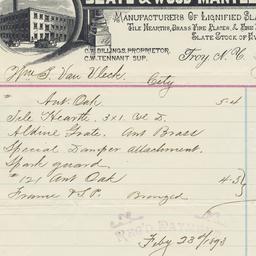 SLATE & WOOD MANTEL
MANUFACTURERS OF LIGNIFIED SLA
TILE HEARTHS, BRASS FIRE PLACES, & FINE
SLATE STOCK OF EV
C.W. BILLINGS, PROPRIETOR.
C.W. TENNANT SUP.
Troy N.Y.
Wm G. Van Vleck
City
" Ant. Oak 54
Tile Hearth. 3x1
Aldine Grate. Ant Brass
Special Damper attachment.
Spark guard.
" 121 Ant Oak 43
Frame & S.P. Bronzed
REC'D PAYMENT
Feby 23d 1893